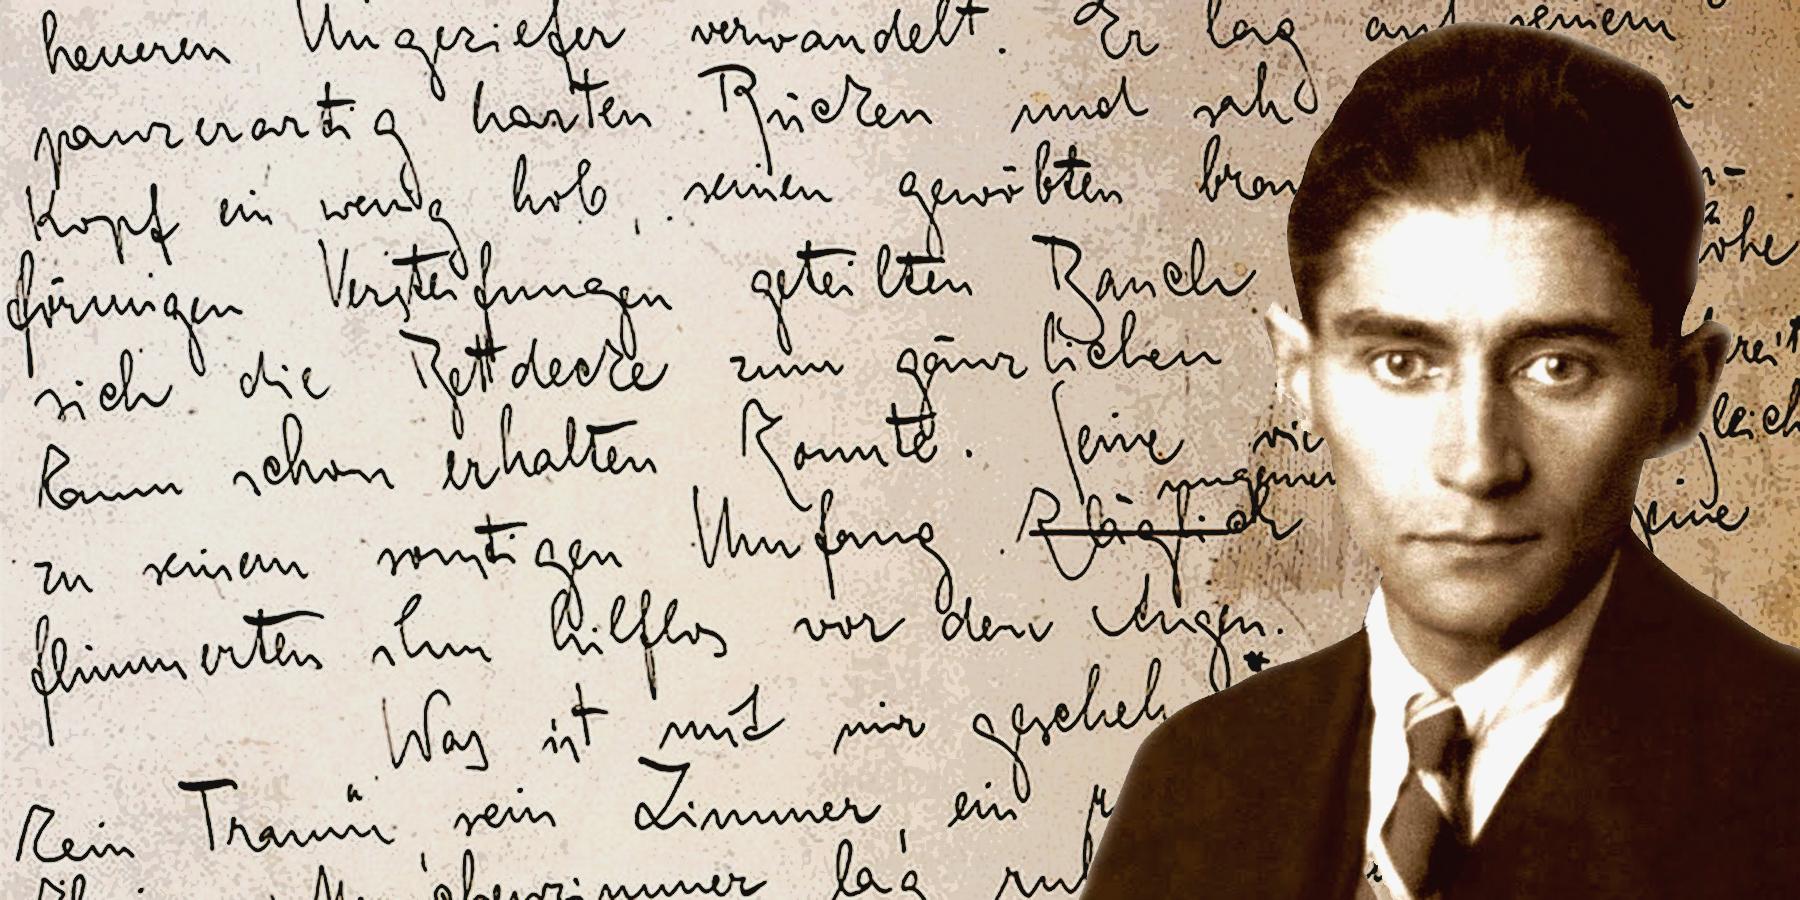 heueren Ungeziefer verwandelt. Er lag auf seinem
panzerartig harten Rücken und sah
Kopf ein wenig hob, seinen gewölbten braun
förmigen Versteifungen geteilten Bauch öhe
sich die Bettdecke zum gänzlichen reit
kaum schon erhalten konnte. Seine vie leich
ungemei
zu seinem sonstigen Umfang kläglich eine
flimmerten ihm hilflos vor den Augen.
Was ist mit mir gescheh
kein Traum sein Zimmer, ein
lag ruh